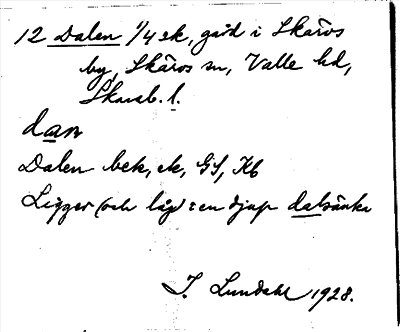 12 Dalen 1/4 sk, gård i Skärvs
by, Skärvs sn, Valle hd,
Skarab. l.
dan
Dalen bek, ek, GS, Kb
Ligger (och låg) i en djup dalsänka
J. Lundahl 1928.